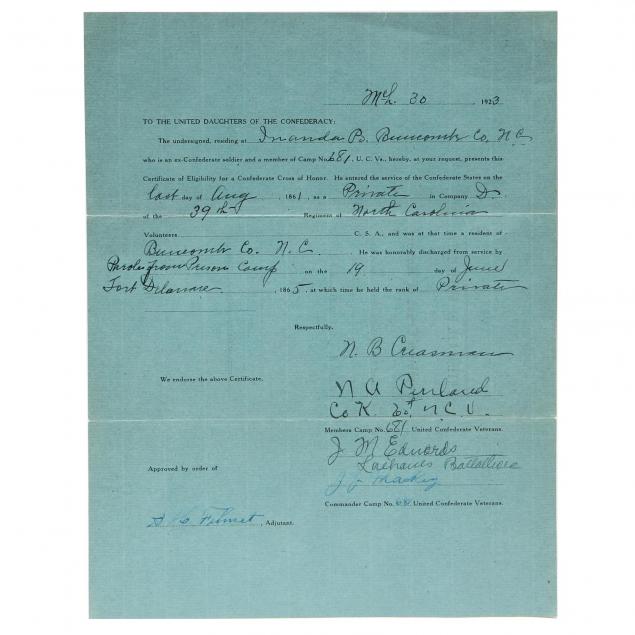 Mch. 30 1923
TO THE UNITED DAUGHTERS OF THE CONFEDERACY:
The undersigned, residing at Inanda P.O. Buncombe Co, N.C.
who is an ex-Confederate soldier and a member of Camp No. 681, U. C. Vs., hereby, at your request, presents this
Certificate of Eligibility for a Confederate Cross of Honor. He entered the service of the Confederate States on the
last day of Aug , 1861, as a Private in Company D
of the 39th Regiment of North Carolina
Volunteers C. S. A., and was at that time a resident of
Buncombe Co. N.C. He was honorably discharged from service by
Parole from Prison Camp on the 19 day of June
Fort Delaware , 1865, at which time he held the rank of Private
Respectfully,
N. B Creasman
We endorse the above Certificate.
N A Penland
Co K 60th N.C.V.
Members Camp No. 681 United Confederate Veterans.
J M Edwards
Battallion
Approved by order of
Commander Camp No. 681 United Confederate Veterans.
, Adjutant.